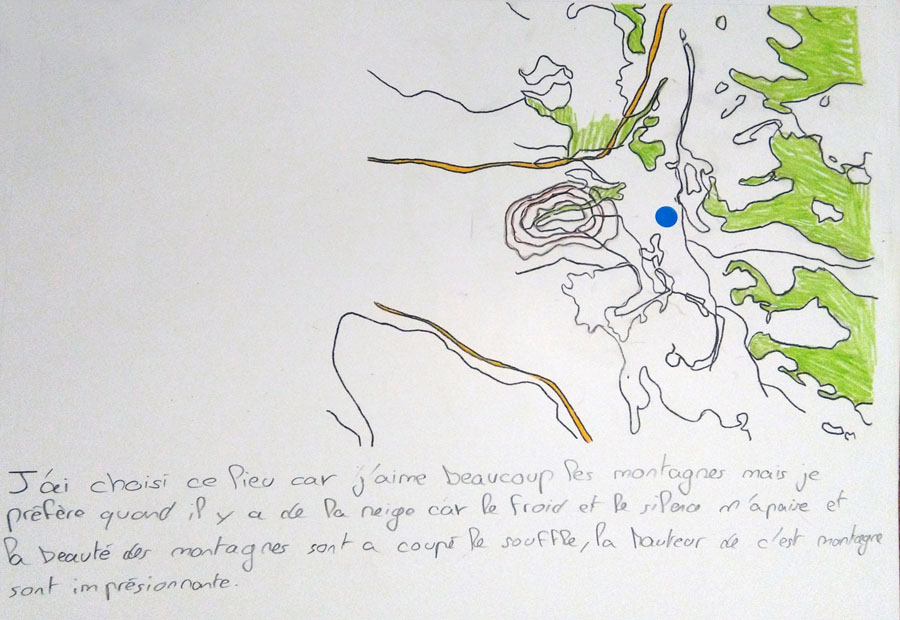 J'ai choisi ce lieu car j'aime beaucoup les montagnes mais je
préfère quand il y a de la neige car le froid et le silence m'apaise et
la beauté des montagnes sont a coupé le souffle, la hauteur de c'est montagne
sont imprésionnante.